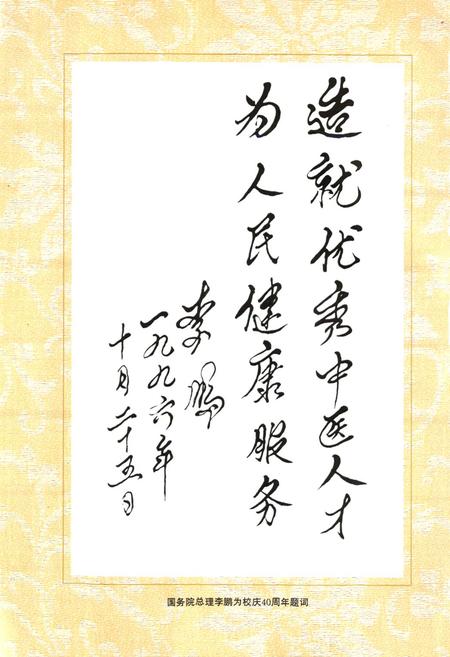 造就优秀中医人才
为人民健康服务
李鹏
一九九六年
十月二十五日
国务院总理李鹏为校庆40周年题词